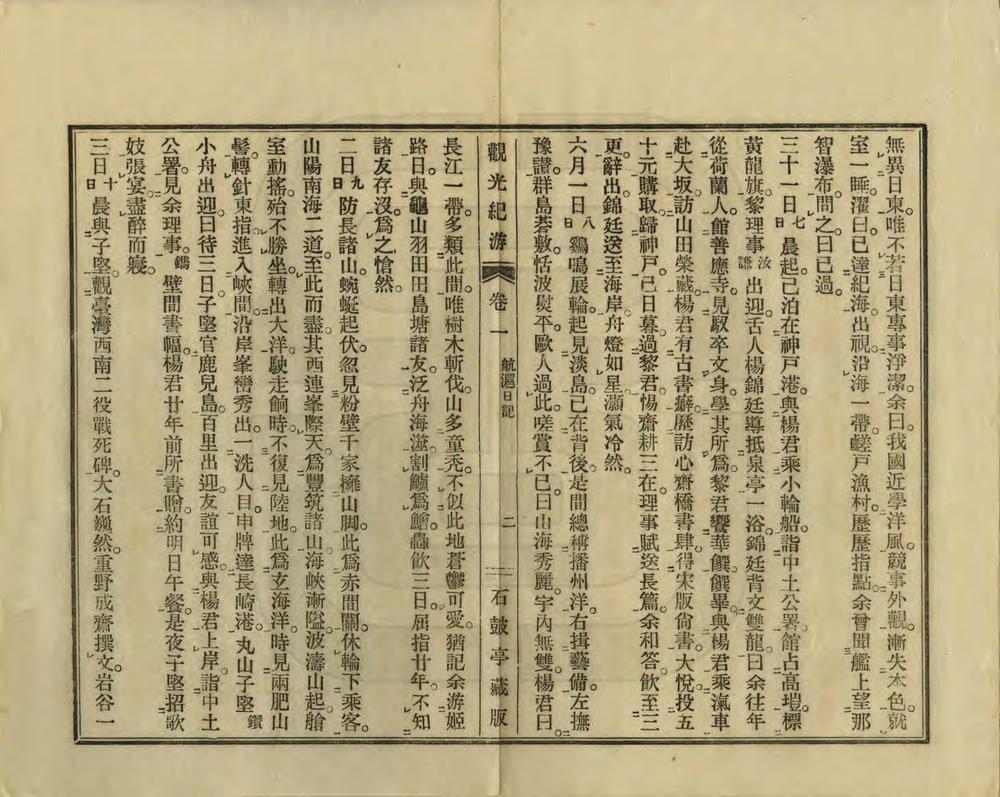 無異日東唯不若日東專事淨潔。余曰我國近學洋風競事外觀。漸失本色。就
室一睡。濯曰已達紀海。出視沿海一帶。鹺戶漁村。歷歷指點。余曾聞艦上望那
智瀑布。問之曰已過。
三十一日七日晨起。已泊在神戶港。與楊君乘小輪船。詣中土公署。館占高塏。標
黃龍旗。黎理事汝謙出迎。舌人楊錦廷導抵泉亭一浴。錦廷背文雙龍。曰余往年
從荷蘭人館善應寺。見馭卒文身。學其所爲。黎君饗華饌。饌畢與楊君乘滊車
赴大坂。訪山田榮藏。楊君有古書癖。歷訪心齋橋書肆。得宋版尙書。大悅。投五
十元購取。歸神戶。已日暮。過黎君。惕齋耕三在。理事賦送長篇。余和答。飲至三
更。辭出。錦廷送至海岸。舟燈如星。灝氣冷然。
六月一日八日鷄鳴展輪。起見淡島已在背後。是間總稱播州洋。右揖藝備。左撫
豫讃。群島碁敷。恬波熨平。歐人過此。嗟賞不已。曰山海秀麗。宇內無雙。楊君曰。
觀光紀游 卷一 航滬日記 二 石鼓亭藏版
長江一帶多類此間。唯樹木斬伐。山多童禿。不似此地蒼鬱可愛。猶記余游姬
路日。與龜山羽田田島塘諸友。泛舟海澨。割鱸爲鱠。轟飲三日。屈指廿年。不知
諸友存沒。爲之愴然。
二日九日防長諸山。蜿蜒起伏。忽見粉壁千家擁山脚。此爲赤間關。休輪下乘客。
山陽南海二道。至此而盡。其西連峯際天。爲豐筑諸山。海峽漸隘。波濤山起。艙
室動搖。殆不勝坐。轉出大洋。駛走餉時。不復見陸地。此爲玄海洋。時見兩肥山
髻。轉針東指。進入峽間。沿岸峯巒秀出。一洗人目。申牌達長崎港。丸山子堅鑽
小舟出迎。曰待三日。子堅官鹿兒島。百里出迎。友誼可感。與楊君上岸。詣中土
公署。見余理事。鐫壁間書幅。楊君廿年前所書贈。約明日午餐。是夜子堅招歌
妓張宴。盡醉而寢。
三日十日晨與子堅觀臺灣西南二役戰死碑。大石巍然。重野成齋撰文。岩谷一